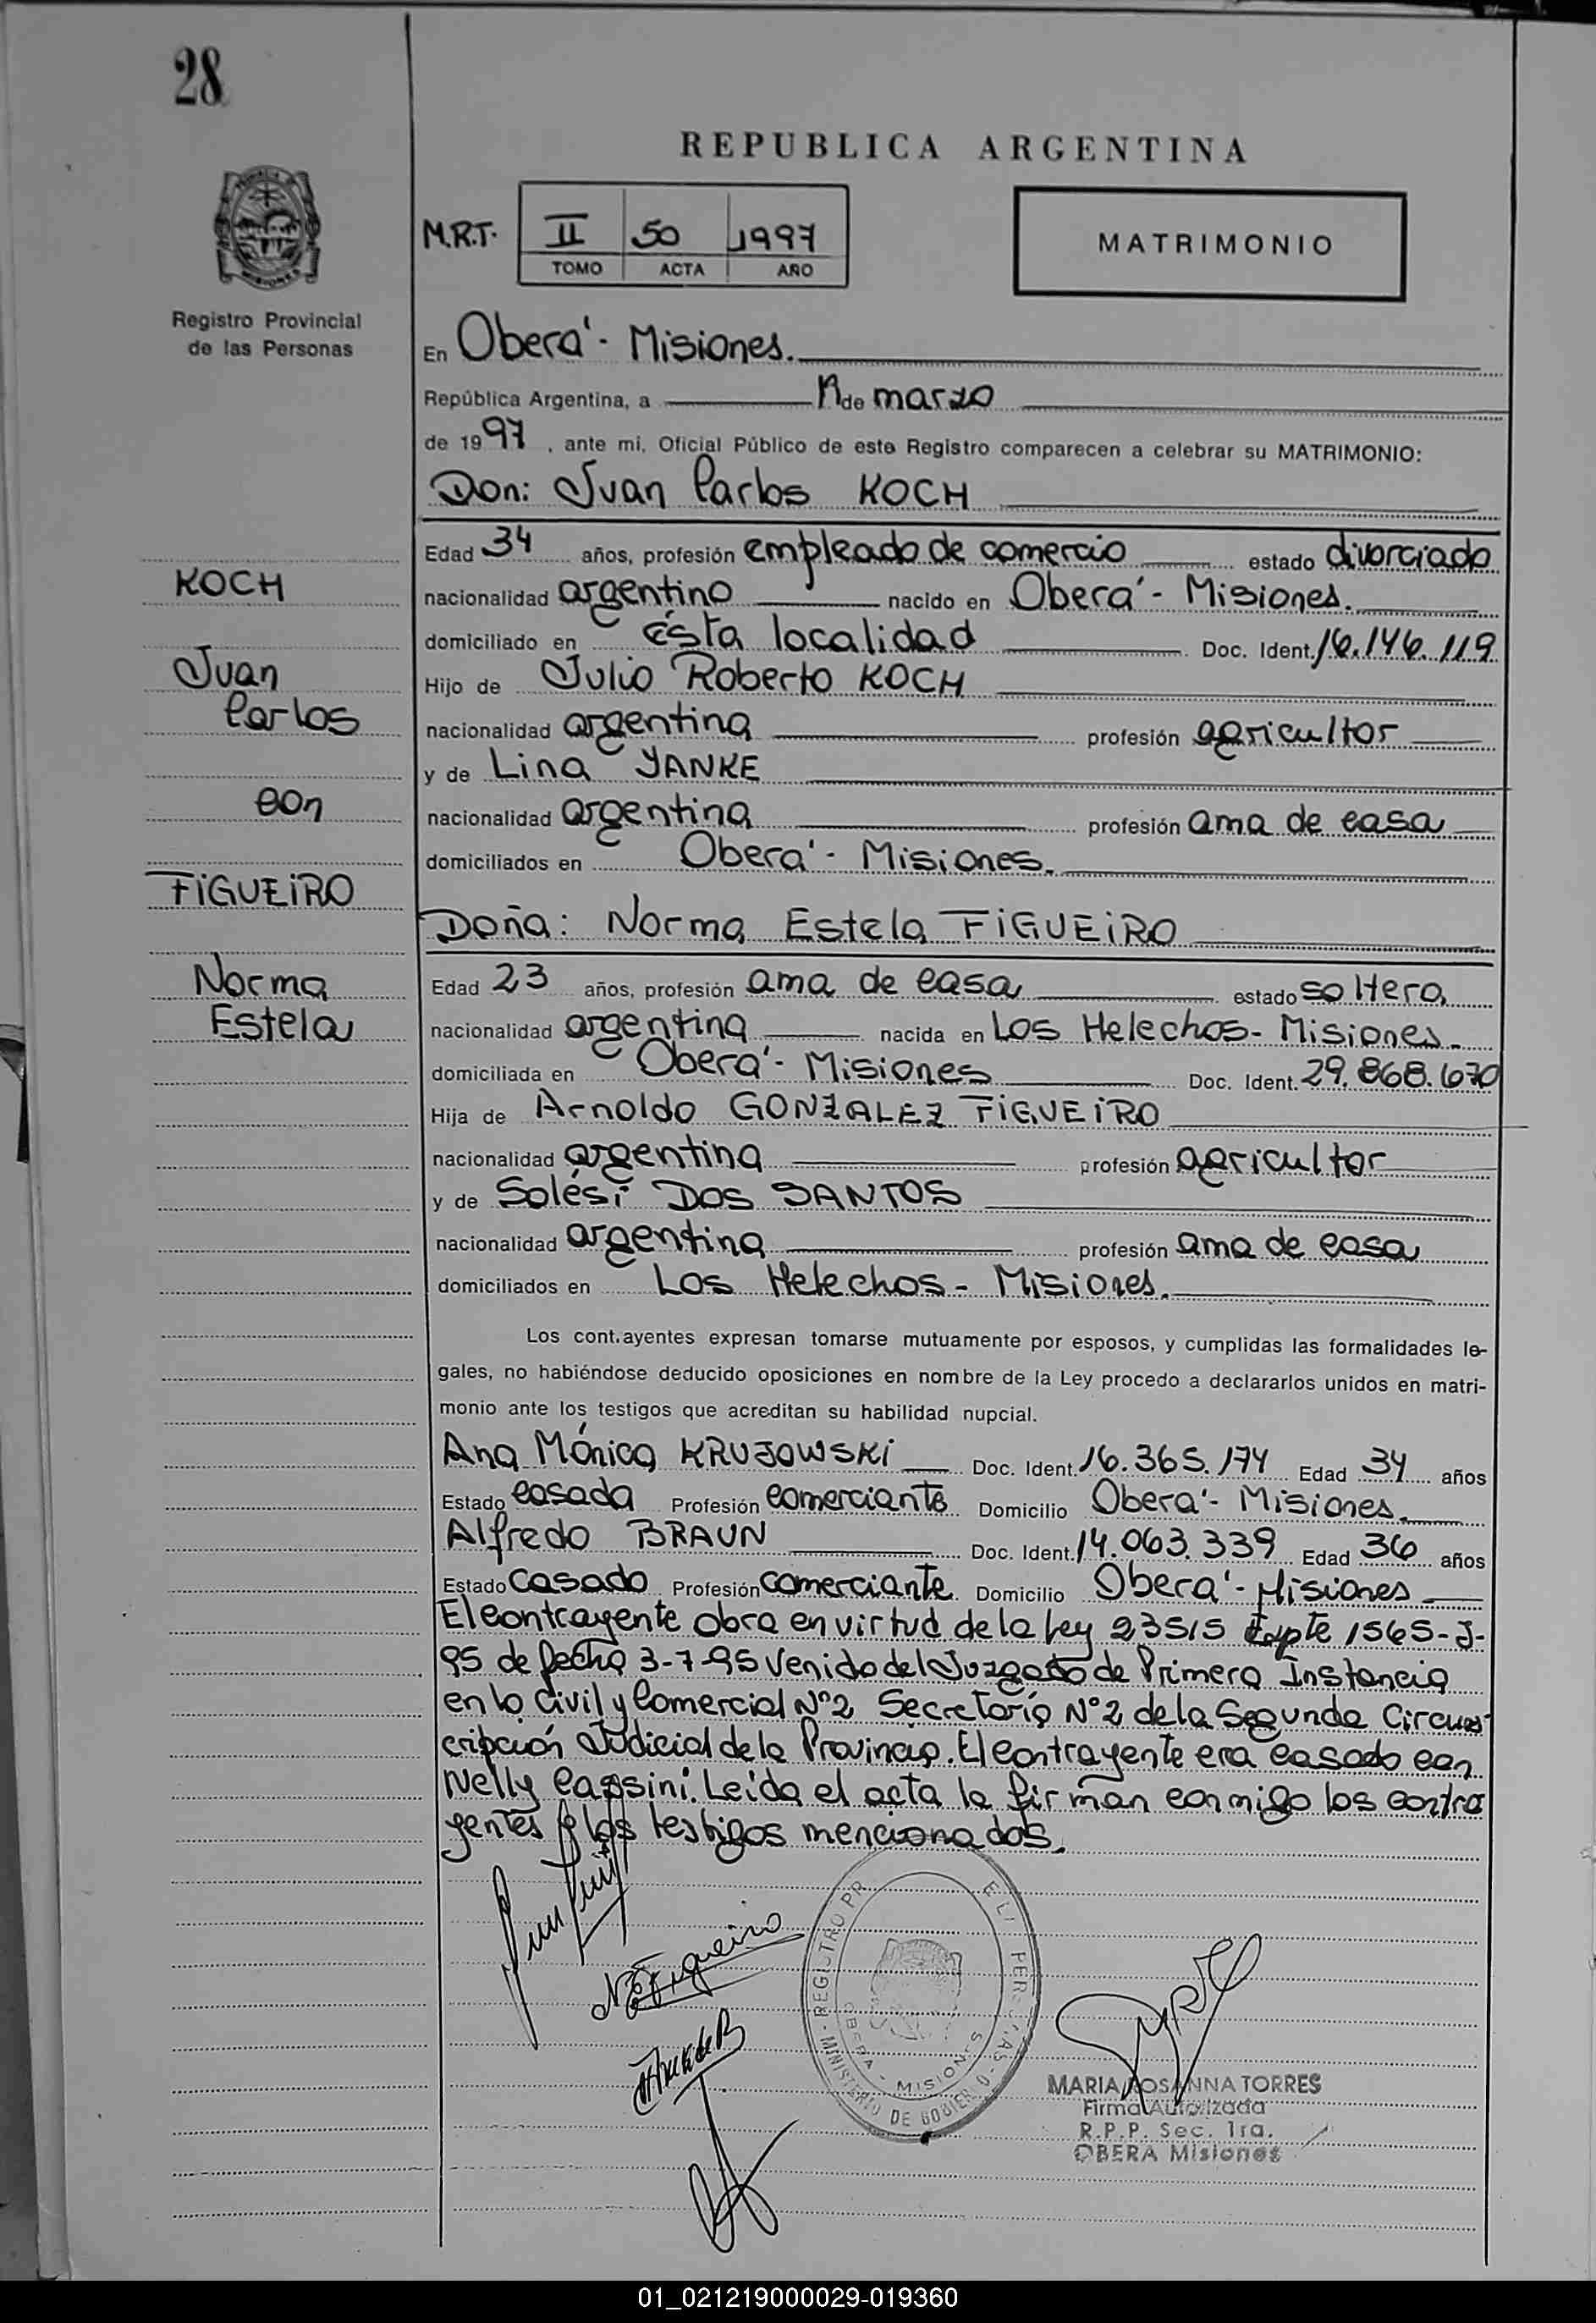 28
REPUBLICA ARGENTINA
M.R.T. II 50 1997
TOMO ACTA AÑO
MATRIMONIO
Registro Provincial
de las Personas
En Oberá - Misiones.
República Argentina, a de marzo
de 1997, ante mi, Oficial Público de este Registro comparecen a celebrar su MATRIMONIO:
Don: Juan Carlos KOCH
Edad 34 años, profesión empleado de comercio estado divorciado
KOCH
nacionalidad argentino nacido en Oberá - Misiones.
domiciliado en Ésta localidad Doc. Ident. 16.146.119
Juan
Hijo de Julio Roberto KOCH
Carlos
nacionalidad argentina profesión agricultor
y de Lina YANKE
con
nacionalidad argentina profesión ama de casa
domiciliados en Oberá - Misiones.
FIGUEIRO
Doña: Norma Estela FIGUEIRO
Norma
Edad 23 años, profesión ama de casa estado soltera
Estela
nacionalidad argentina nacida en Los Helechos - Misiones.
domiciliada en Oberá - Misiones Doc. Ident. 29.868.670
Hija de Arnoldo GONZALEZ FIGUEIRO
nacionalidad argentina profesión agricultor
y de Solési DOS SANTOS
nacionalidad argentina profesión ama de casa
domiciliados en Los Helechos - Misiones.
Los cont.ayentes expresan tomarse mutuamente por esposos, y cumplidas las formalidades le-
gales, no habiéndose deducido oposiciones en nombre de la Ley procedo a declararlos unidos en matri-
monio ante los testigos que acreditan su habilidad nupcial.
Ana Mónica KRUJOWSKI Doc. Ident. 16.365.174 Edad 34 años
Estado casada Profesión comerciante Domicilio Oberá - Misiones.
Alfredo BRAUN Doc. Ident. 14.063.339 Edad 36 años
Estado Casado Profesión comerciante Domicilio Oberá - Misiones
El contrayente obra en virtud de la ley 23515 Expte 1565-J-
95 de fecha 3-7-95 Venido del Juzgado de Primera Instancia
en lo Civil y Comercial Nº2 Secretaría Nº2 de la Segunda Circuns
cripción Judicial de la Provincia. El contrayente era casado con
Nelly Cassini. Leída el acta la firman conmigo los contra
yentes los testigos mencionados.
NEFigueiro
REGISTRO PR
MINISTERIO DE GOBIERNO
OBERA - MISIONES
MARIA ROSANNA TORRES
Firma Autorizada
R.P.P. Sec. 1ra.
OBERA Misiones
01_021219000029-019360